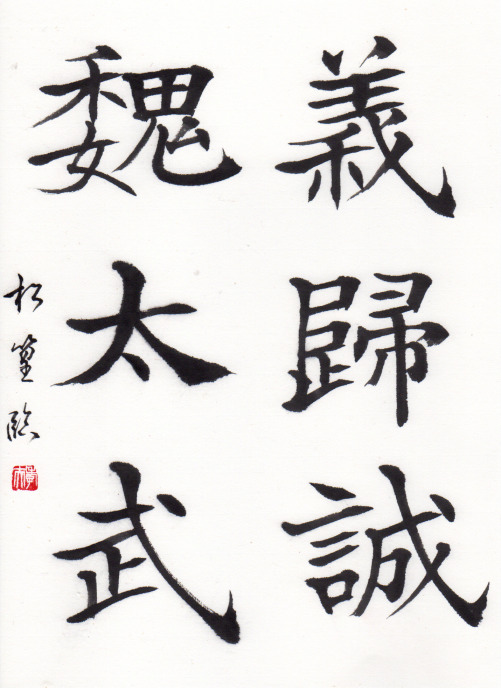 義歸誠
魏太武
松篁臨